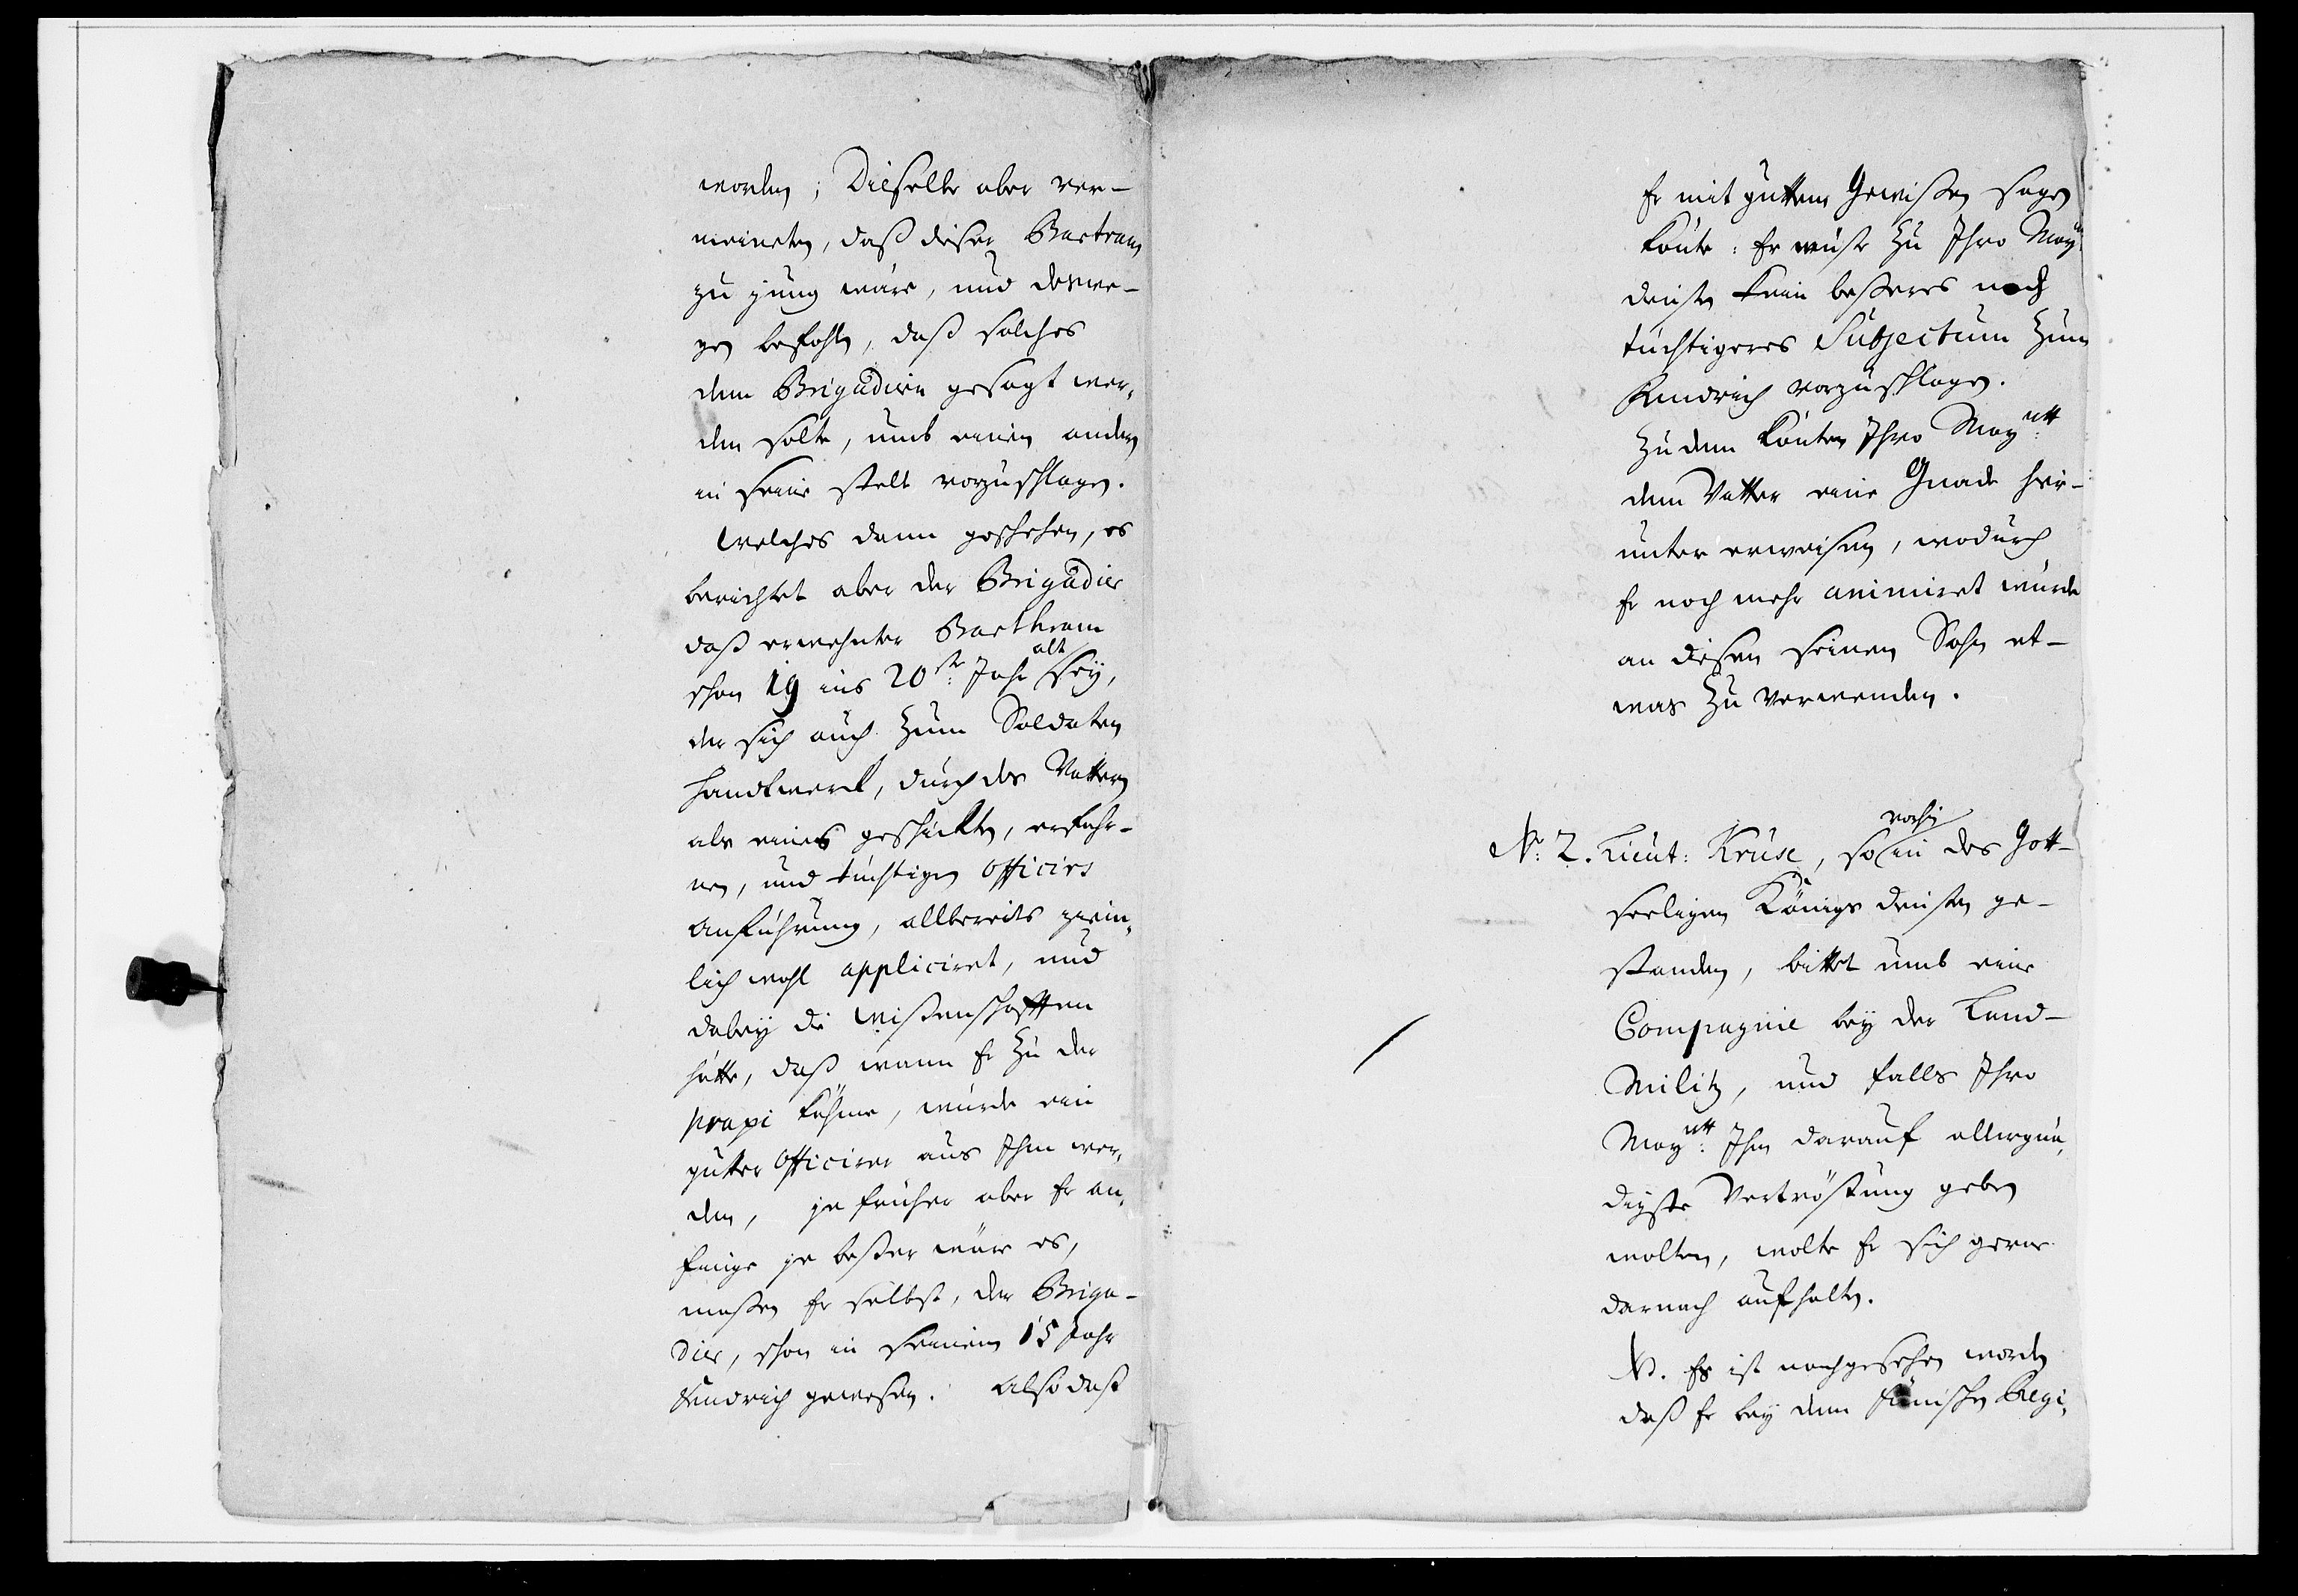 worden; Dieselbe aber ver-
meineten, daß dieser Bartram
zu jung wäre, und deswe-
gen befohlen, daß solches
dem Brigadier gesagt wer,
den solte, umb einen andern
in seine stelle vorzuschlagen.
Welches dann geschehen, es
berichtet aber der Brigadier
daß erwehnter Barthram
schon 19 ins 20ste: Jahr alt sey,
der sich auch zum Soldaten
Handtwerck, durch des Vattern
als eines geschickten, erfahr-
nen, und tüchtigen Officirs
Anführung, allbereits ziem,
lich wohl appliciret, und
dabey die Wißenschafften
hätte, daß wann Er zu der
praxi kähme, würde ein
gutter Officirer aus Ihm wer,
den, je früher aber Er an,
finge je beßer wäre es,
maßen Er selbst, der Briga-
dier, schon in seinem 15 Jahr
Fendrich gewesen. Also daß
Er mit guttem Gewißen sagen
könte: Er wüste zu Ihro Maytt:
diensten kein beßeres noch
tüchtigeres Subjectum zum
Fendrich vorzuschlagen.
Zu dem könten Ihro Maytt:
dem Vatter eine Gnade hir-
unter erweisen, wodurch
Er noch mehr animiret würde
an diesen seinen Sohn et-
was zu verwenden.
No: 2. Lieut: Kruse, so vorhin in des Gott-
seeligen Königs diensten ge-
standen, bittet umb eine
Compagnie bey der Land-
Militz, und falls Ihro
Maytt: Ihm darauf allergnä,
digste Vertröstung geben
wolten, wolte Er sich gerne
darnach aufhalten.
NB. Es ist nachgesehen worden
daß Er bey dem Fünischen Regi,